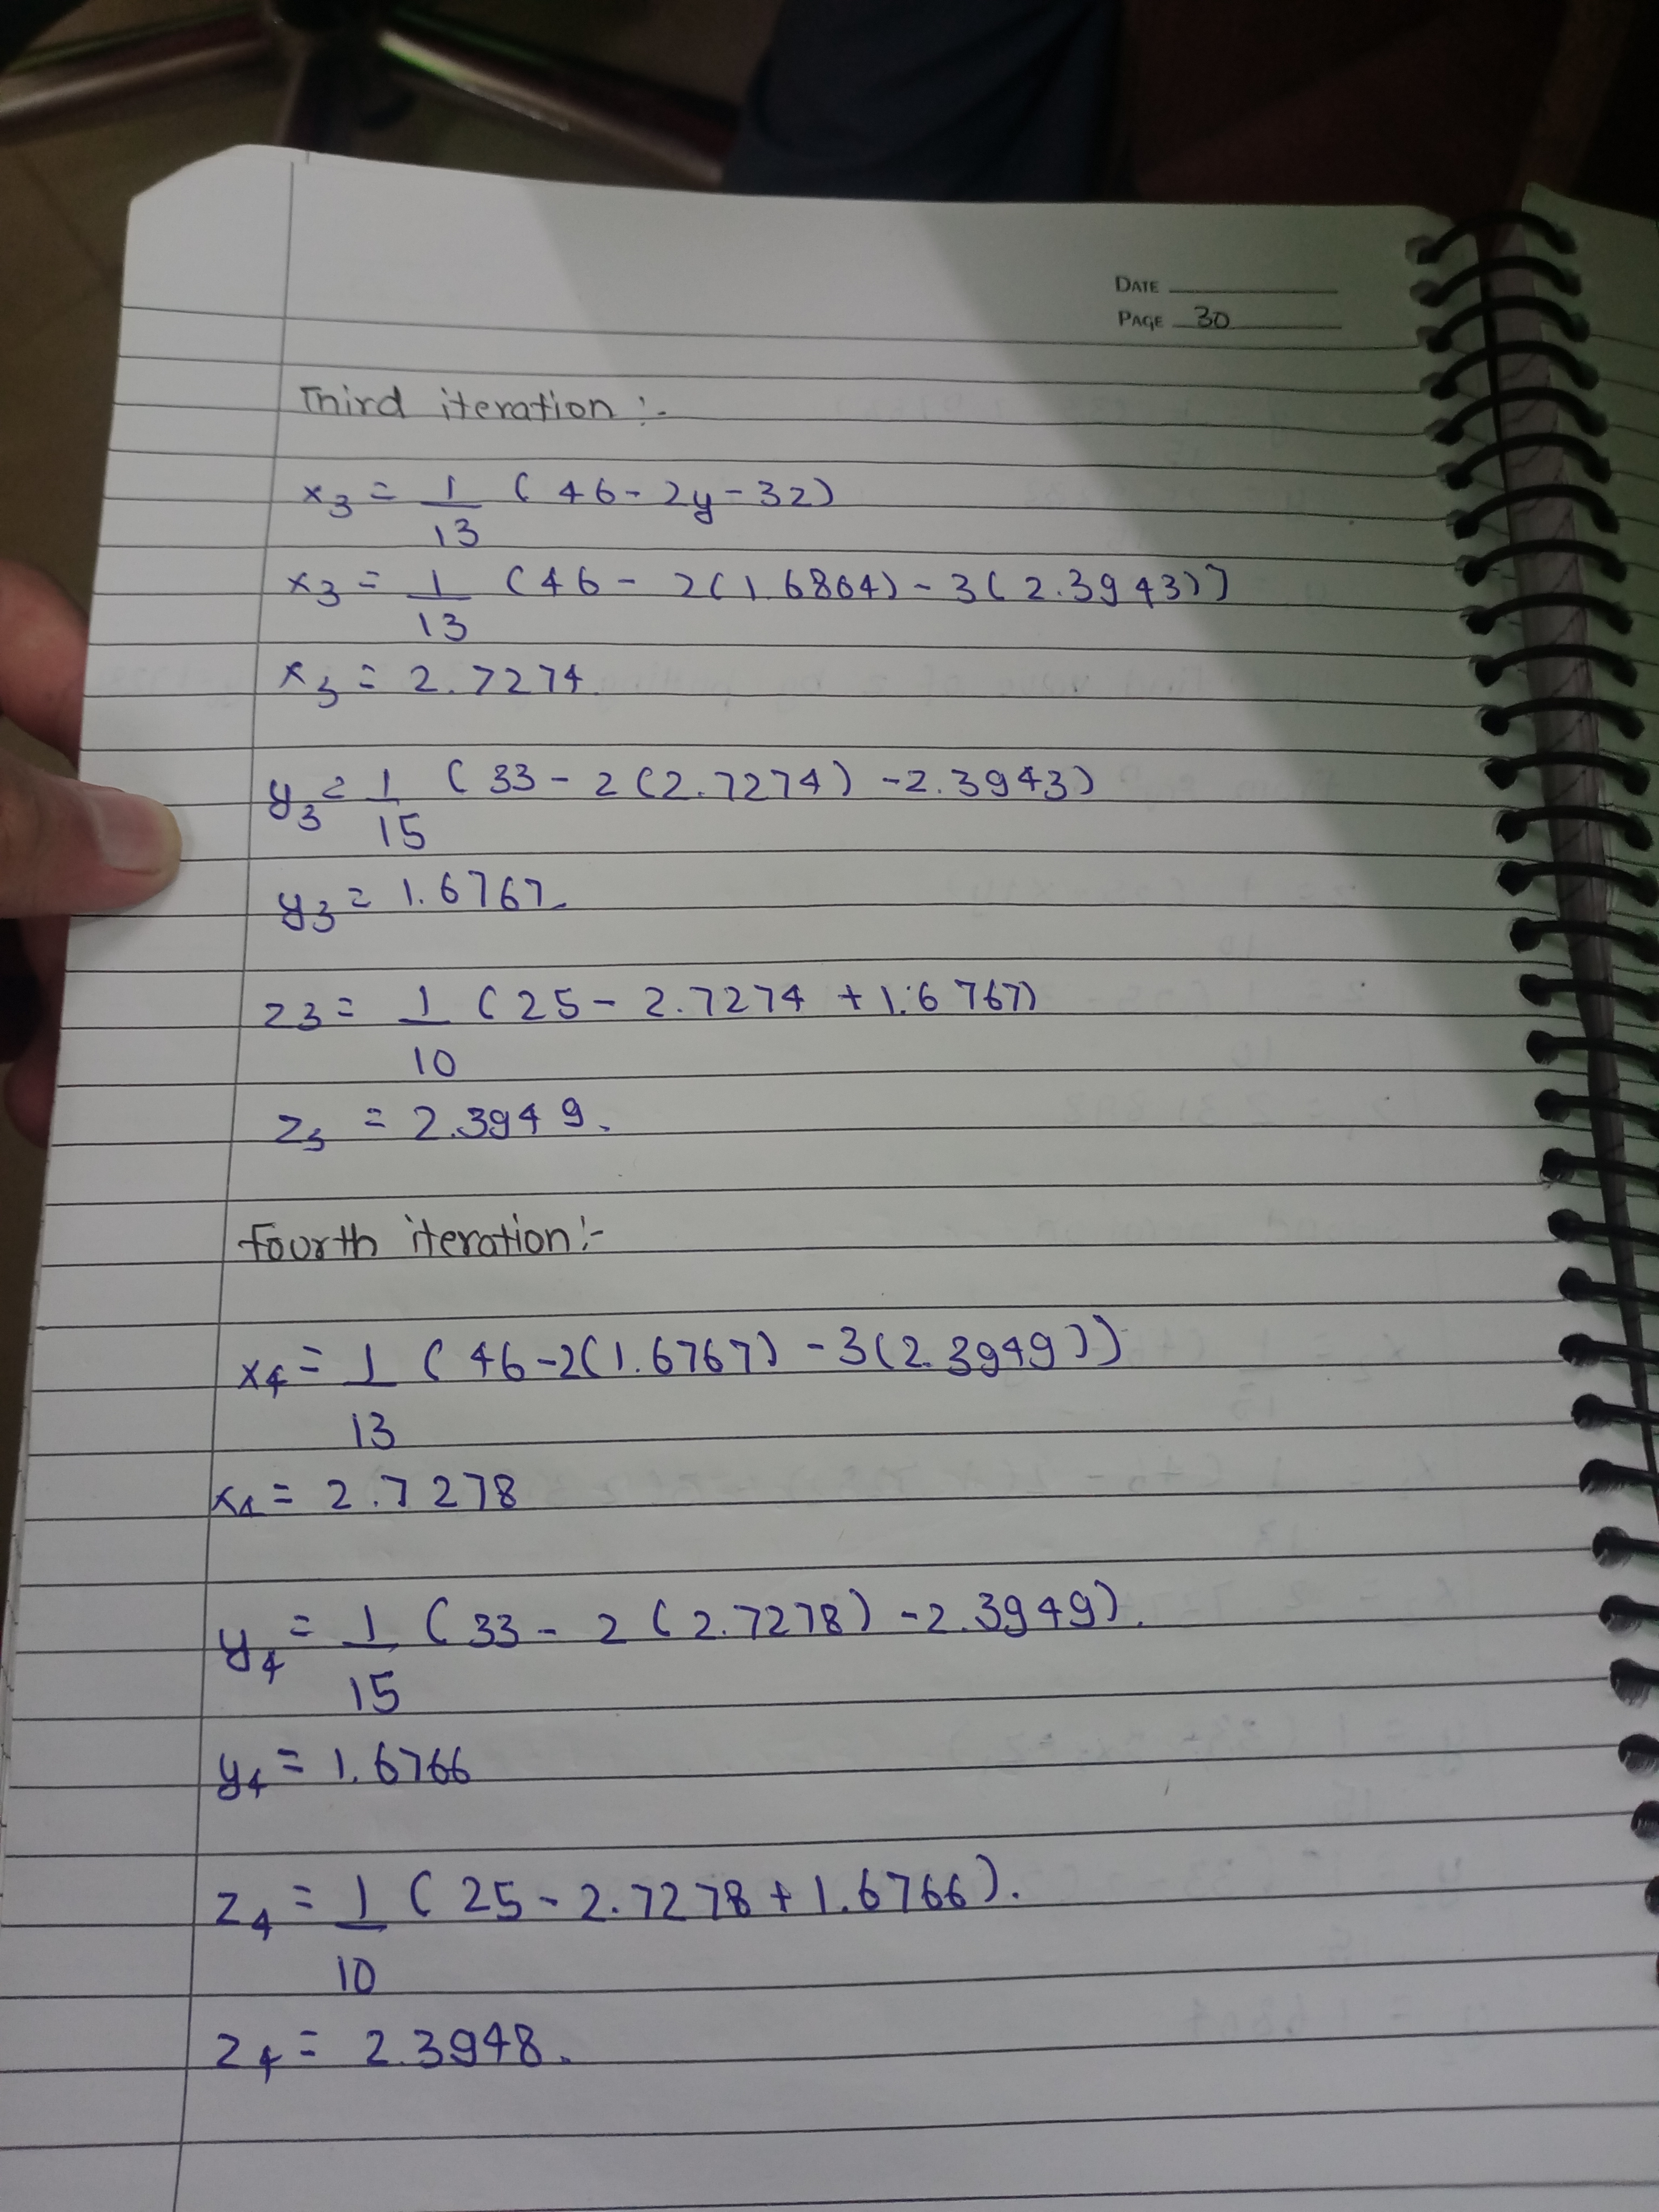 DATE
PAGE 30
Third iteration :-
x3 = 1/13 ( 46 - 2y - 3z)
x3 = 1/13 ( 46 - 2(1.6804) - 3(2.3943)]
x3 = 2.7274
y3 = 1/15 ( 33 - 2(2.7274) - 2.3943)
y3 = 1.6767
z3 = 1/10 ( 25 - 2.7274 + 1.6767)
z3 = 2.3949.
Fourth iteration :-
x4 = 1/13 ( 46 - 2(1.6767) - 3(2.3949))
x4 = 2.7278
y4 = 1/15 ( 33 - 2 (2.7278) - 2.3949).
y4 = 1.6766
z4 = 1/10 ( 25 - 2.7278 + 1.6766).
z4 = 2.3948.